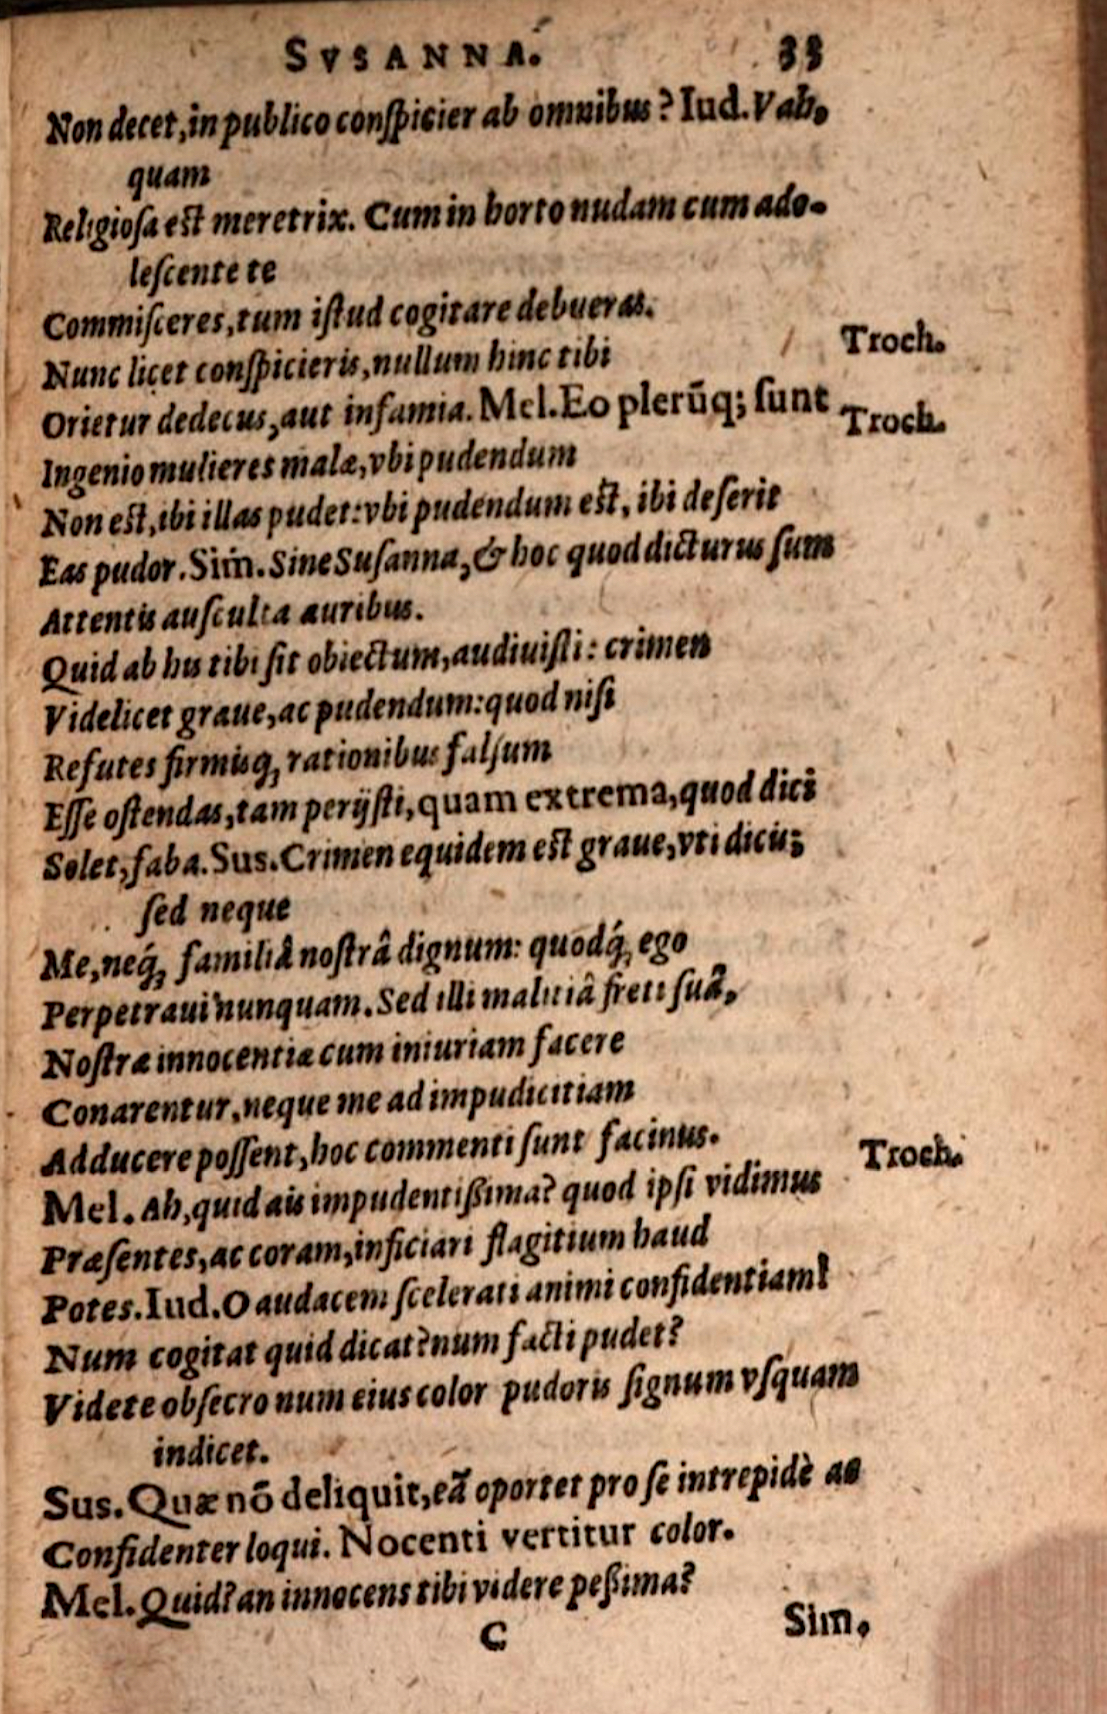 SVSANNA. 33
Non decet, in publico conſpicier ab omnibus? Iud. Vah,
quam
Religioſa eſt meretrix. Cum in horto nudam cum ado-
leſcente te
Commiſceres, tum iſtud cogitare debueras.
Nunc licet conſpicieris, nullum hinc tibi Troch.
Orietur dedecus, aut infamia. Mel. Eo plerũq; ſunt Troch.
Ingenio mulieres malæ, vbi pudendum
Non eſt, ibi illas pudet: vbi pudendum eſt, ibi deſerit
Eas pudor. Sim. Sine Suſanna, & hoc quod dicturus ſum
Attentis auſculta auribus.
Quid ab his tibi ſit obiectum, audiuiſti: crimen
Videlicet graue, ac pudendum: quod niſi
Refutes firmisq; rationibus falſum
Eſſe oſtendas, tam perijſti, quam extrema, quod dici
Solet, faba. Sus. Crimen equidem eſt graue, vti dicis;
ſed neque
Me, neq́; familiâ noſtrâ dignum: quodq́; ego
Perpetraui nunquam. Sed illi malitiâ freti ſuâ,
Noſtræ innocentiæ cum iniuriam facere
Conarentur, neque me ad impudicitiam
Adducere poſſent, hoc commenti ſunt facinus. Troch.
Mel. Ah, quid ais impudentißima? quod ipſi vidimus
Præſentes, ac coram, inficiari flagitium haud
Potes. Iud. O audacem ſcelerati animi confidentiam!
Num cogitat quid dicat? num facti pudet?
Videte obſecro num eius color pudoris ſignum vſquam
indicet.
Sus. Quæ nõ deliquit, eã oportet pro ſe intrepidè ac
Confidenter loqui. Nocenti vertitur color.
Mel. Quid? an innocens tibi videre peßima?
C Sim.